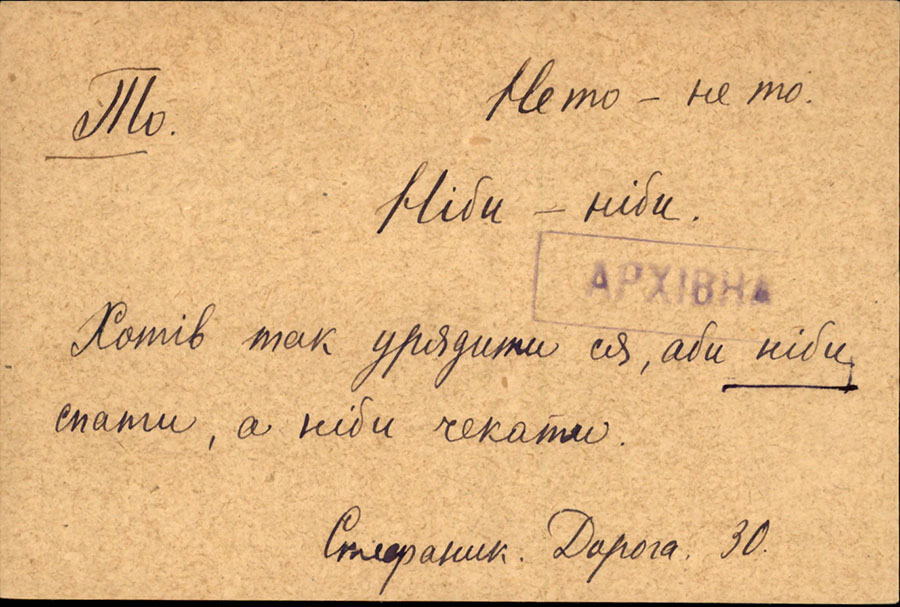 То.
Не то – не то.
Ніби – ніби.
АРХІВНА
Хотів так урядити ся, аби ніби
спати, а ніби чекати.
Стефаник. Дорога. 30.